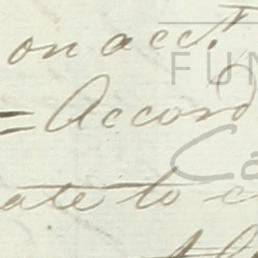 on acct.
= Accord
ate to c
FUN
Ca